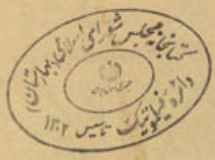 کتابخانه مجلس شورای اسلامی (بهارستان)
دائره فیلاتلیک تأسیس ۱۳۰۲